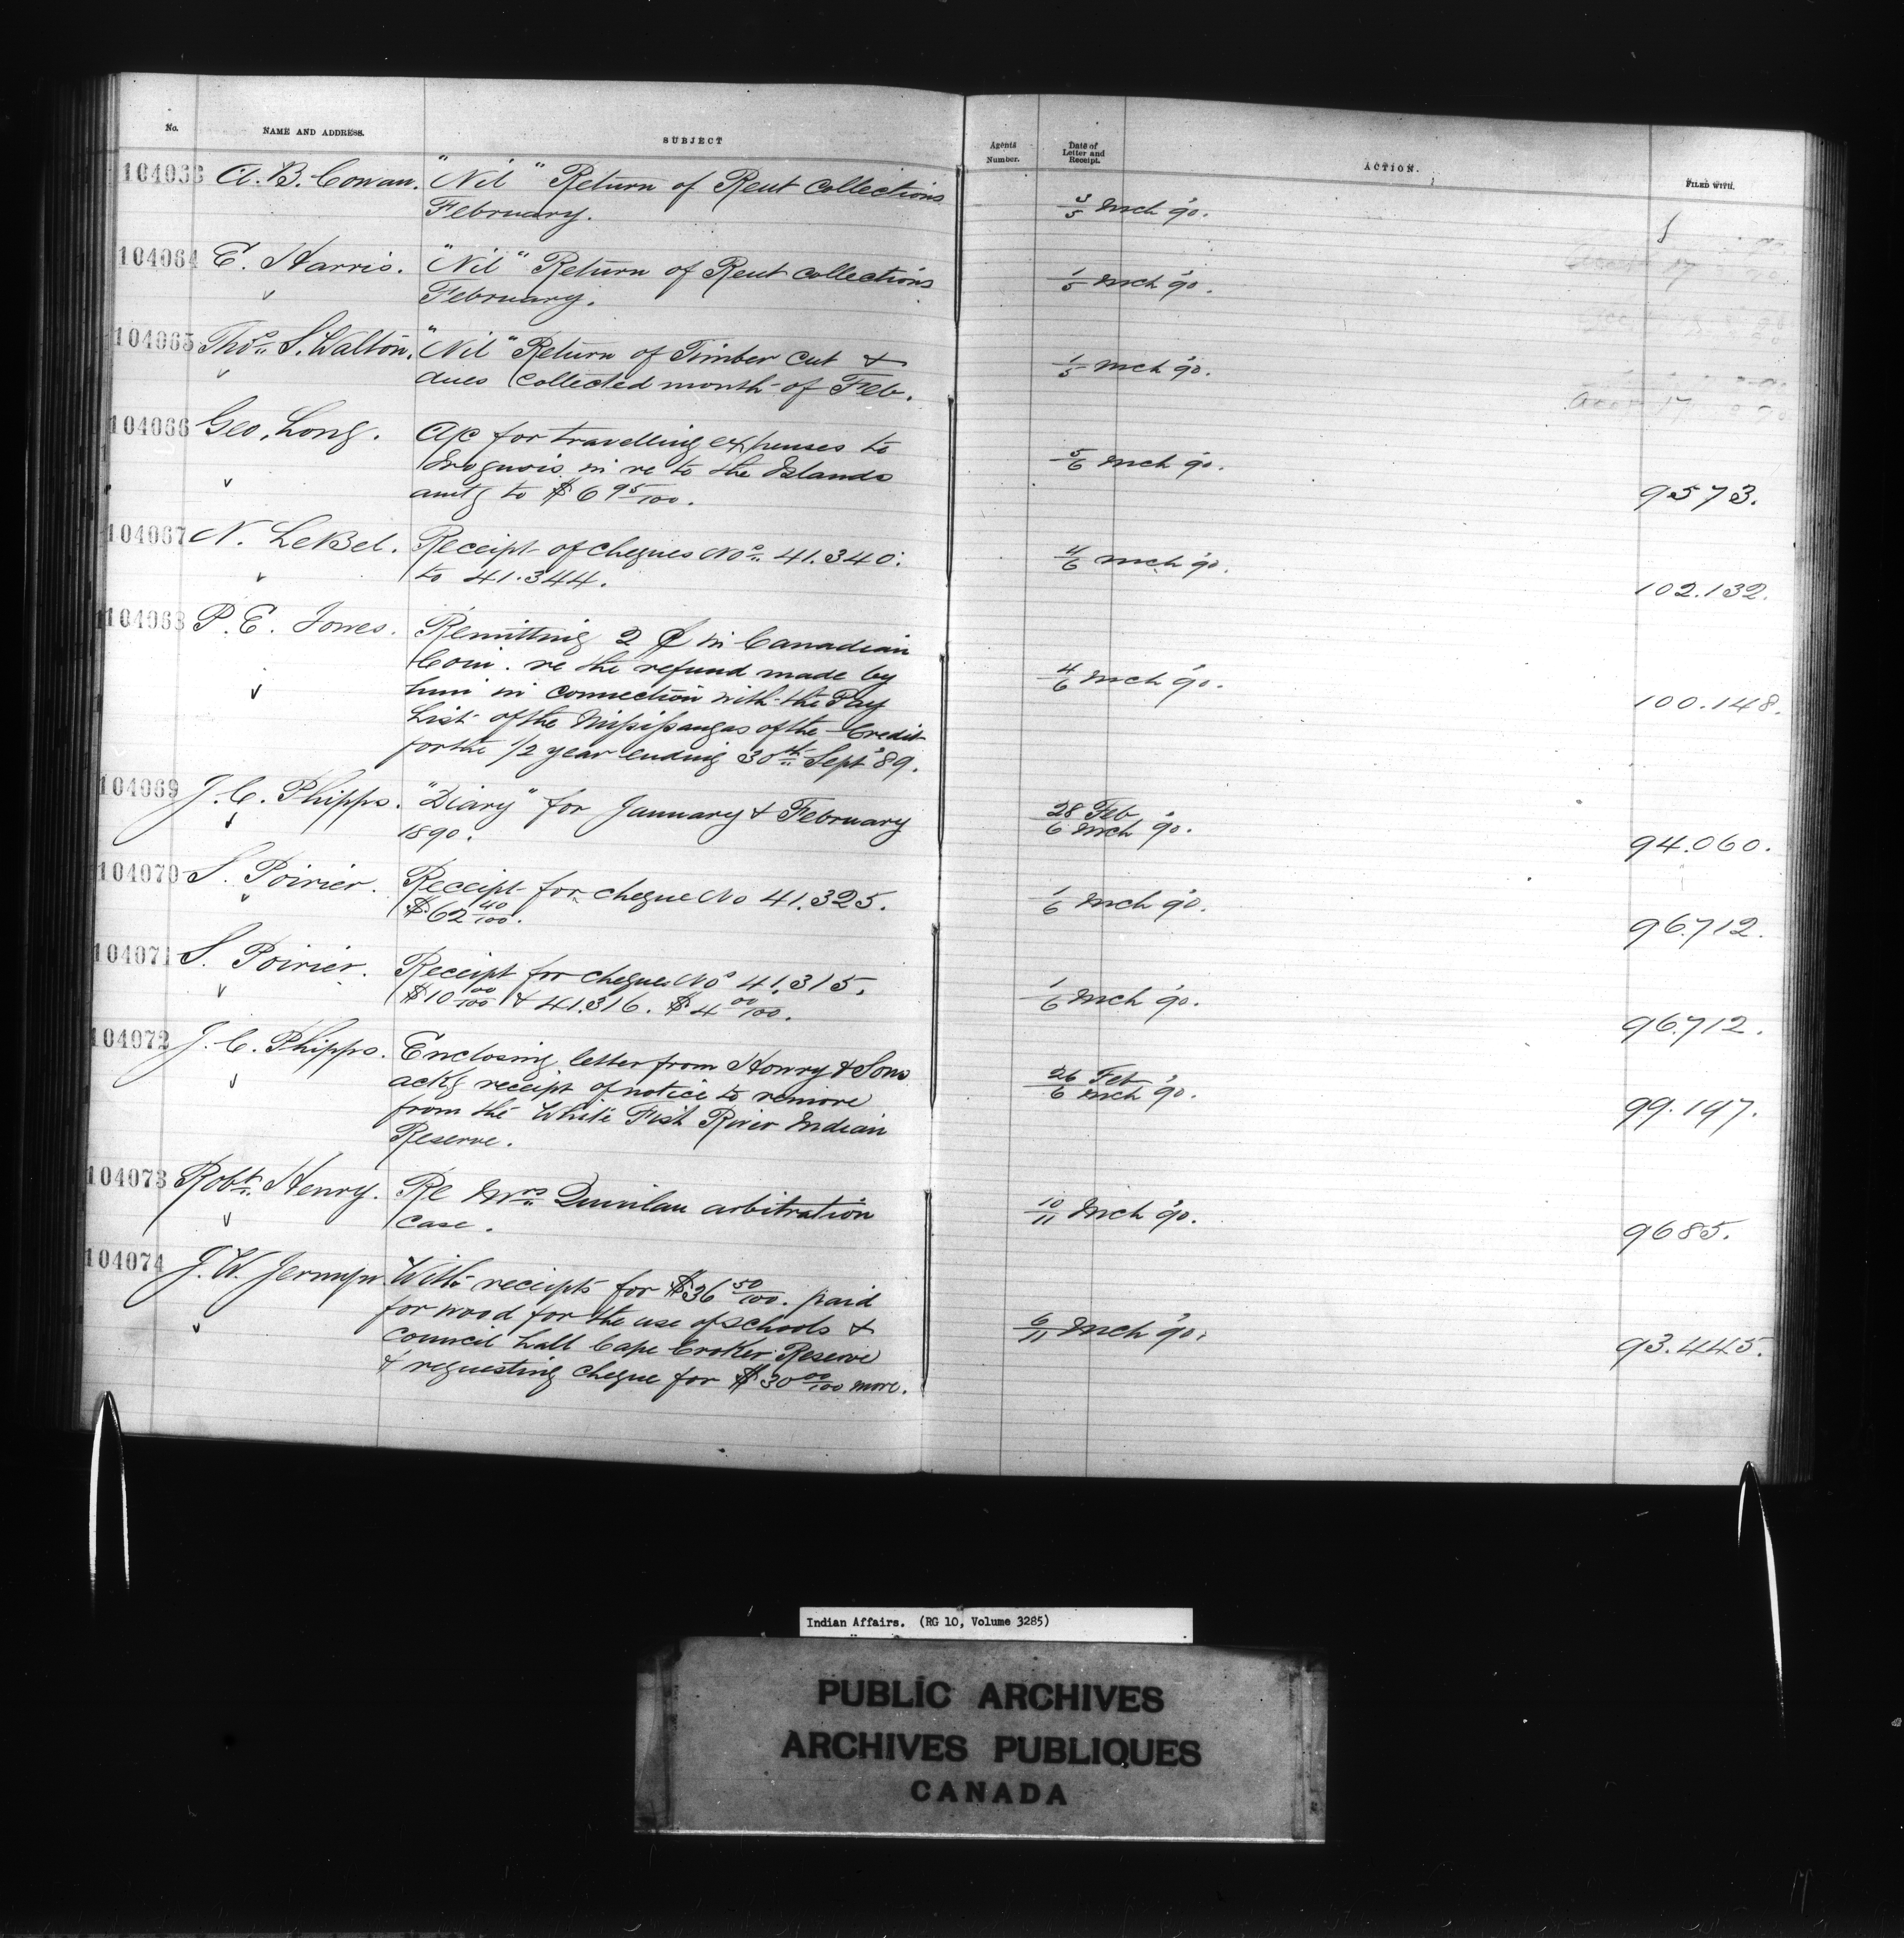 No. NAME AND ADDRESS. SUBJECT Agents Number. Date of Letter and Receipt. ACTION. FILED WITH.
104063 A. B. Cowan. "Nil" Return of Rent Collections
February. 3/5 Mch '90.
104064 E. Harris. "Nil" Return of Rent Collections
February. 1/5 Mch '90.
104065 Thos. S. Walton. "Nil" Return of Timber cut &
dues collected month of Feb. 1/5 Mch '90.
104066 Geo. Long. a/c for travelling expenses to
Iroquois in re to the Islands 5/6 Mch '90.
amtg to $6 95/100. 9573.
104067 N. LeBel. Receipt of cheques Nos. 41.340.
to 41.344. 4/6 Mch '90. 102.132.
104068 P. E. Jones. Remitting 2 ¢ in Canadian
Coin. re the refund made by
him in connection with the Pay 4/6 Mch '90. 100.148.
List of the Missisaugas of the Credit
for the 1/2 year ending 30th Sept '89.
104069 J. C. Phipps. "Diary" for January & February 28 Feb
1890. 6 Mch '90. 94.060.
104070 S. Poirier. Receipt for cheque No 41.325.
$62 40/100. 1/6 Mch '90. 96.712.
104071 S. Poirier. Receipt for cheques Nos 41.315.
$10 00/100 & 41.316. $4 00/100. 1/6 Mch '90. 96.712.
104072 J. C. Phipps. Enclosing letter from Howry & Sons
ackg receipt of notice to remove 26 Feb
from the White Fish River Indian 6 Mch '90. 99.197.
Reserve.
104073 Robt. Henry. Re Mrs. Quinlan arbitration
case. 10/11 Mch '90. 9685.
104074 J. W. Jermyn. With receipts for $36 50/100. paid
for wood for the use of schools &
council hall Cape Croker Reserve 6/11 Mch '90. 93.445.
& requesting cheque for $30 00/100 more.
Indian Affairs. (RG 10, Volume 3285)
PUBLIC ARCHIVES
ARCHIVES PUBLIQUES
CANADA